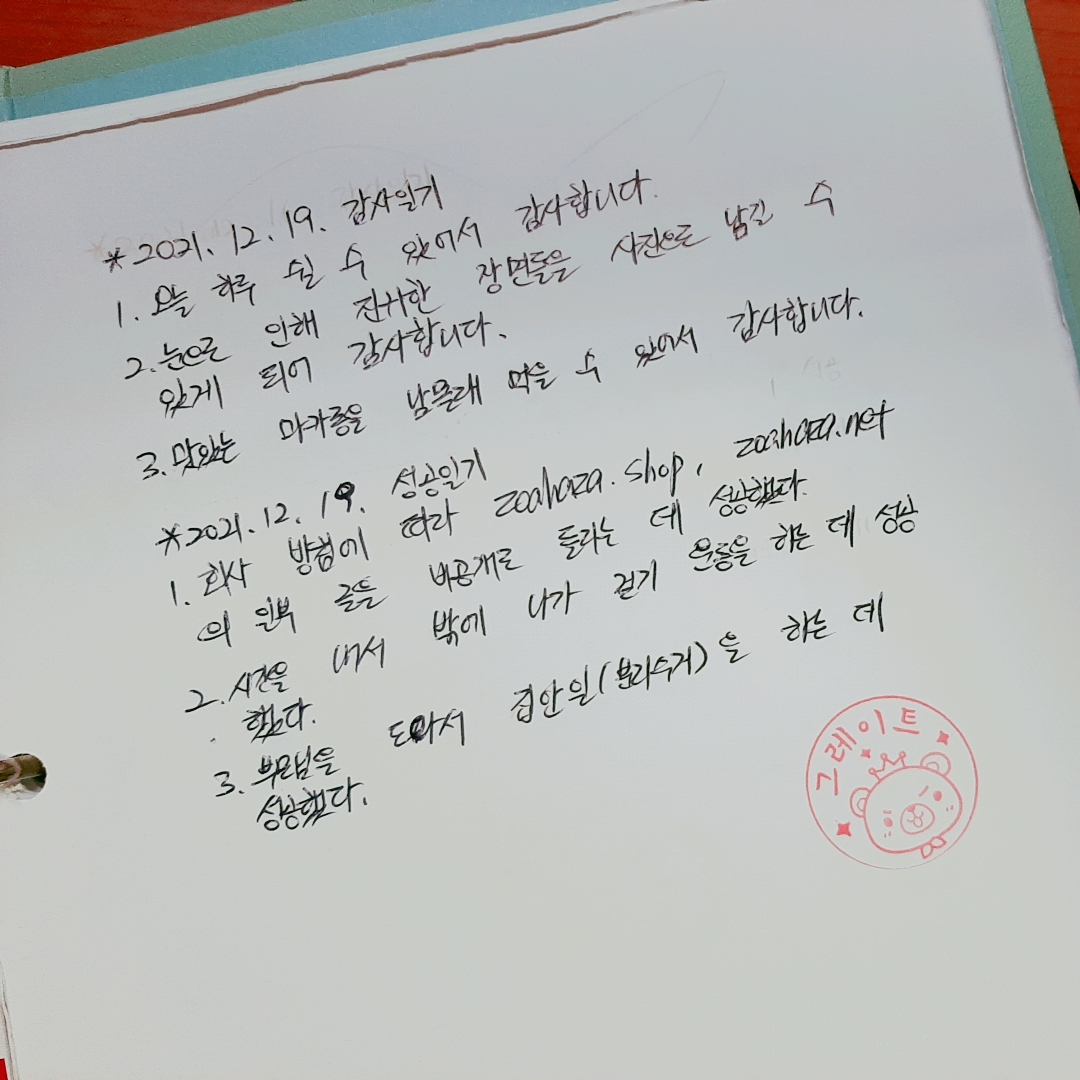 *2021.12.19. 감사일기
1. 오늘 하루 쉴 수 있어서 감사합니다.
2. 눈으로 인해 진귀한 장면들을 사진으로 남길 수
있게 되어 감사합니다.
3. 맛있는 마카롱을 남몰래 먹을 수 있어서 감사합니다.
*2021.12.19. 성공일기
1. 회사 방침에 따라 zoahaza.shop, zoahaza.net
의 일부 글들 비공개로 돌리는 데 성공했다.
2. 시간을 내서 밖에 나가 걷기 운동을 하는 데 성공
했다.
3. 부모님을 도와서 집안일(분리수거)을 하는 데
성공했다.
그레이트